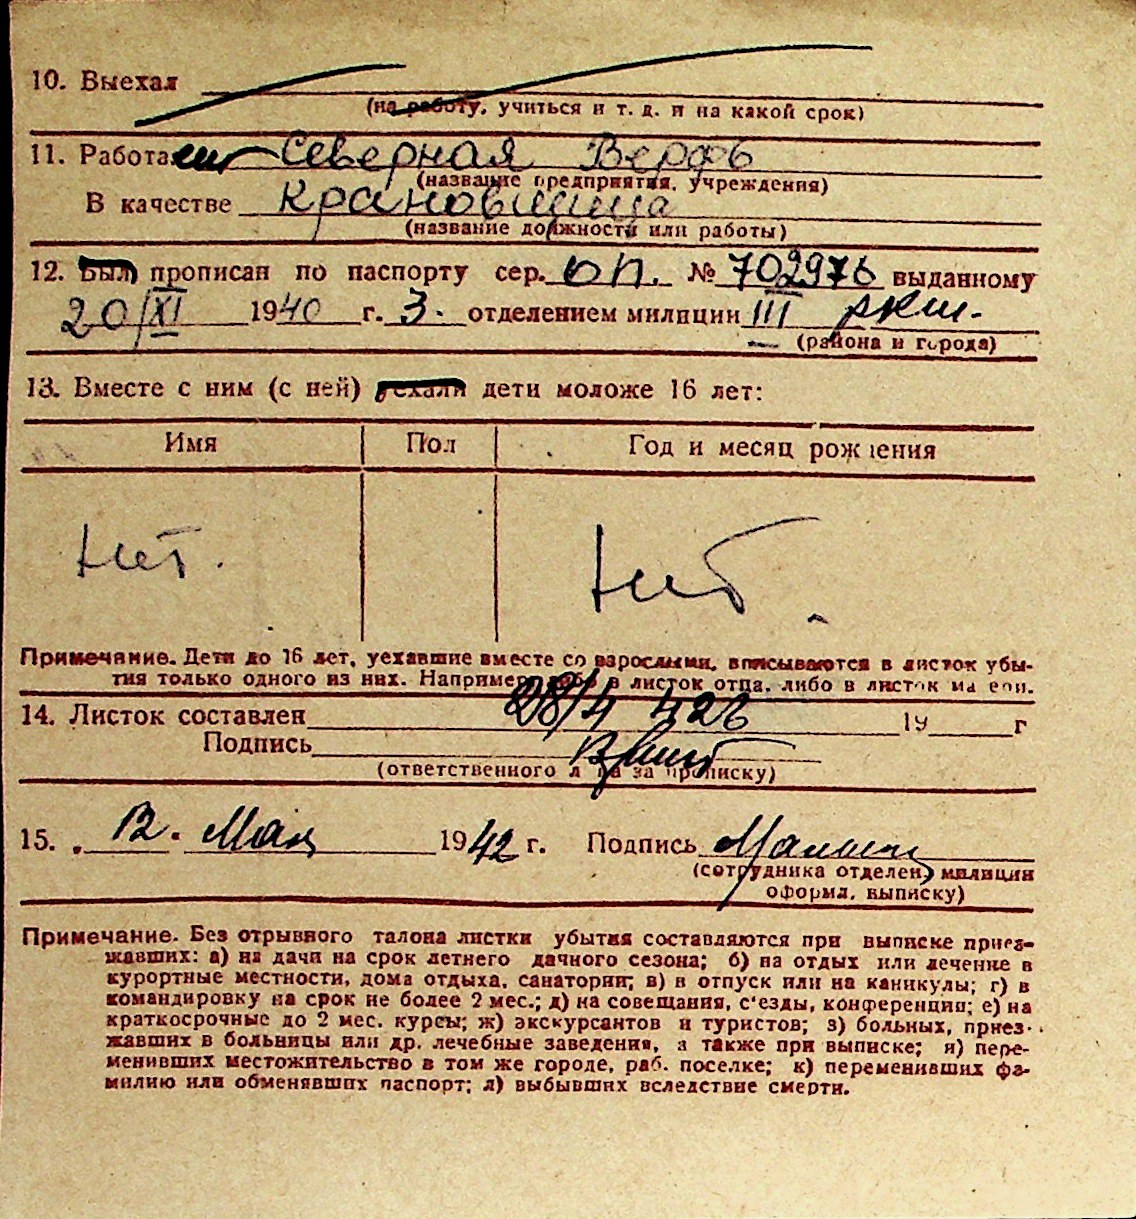 10. Выехал
(на работу, учиться и т. д. и на какой срок)
11. Работает Северная Верфь
(название предприятия, учреждения)
В качестве Крановщица
(название должности или работы)
12. Был прописан по паспорту сер. ОП. № 702976 выданному
20/XI 1940 г. 3. отделением милиции III ркм.
(района и города)
13. Вместе с ним (с ней) уехали дети моложе 16 лет:
Имя Пол Год и месяц рождения
Нит. Нит.
Примечание. Дети до 16 лет, уехавшие вместе со взрослыми, вписываются в листок убы-
тия только одного из них. Например, либо в листок отца, либо в листок матери.
14. Листок составлен 28/4 42г 19 г
Подпись
(ответственного лица за прописку)
15. 12. Мая 1942 г. Подпись
(сотрудника отделен. милиции
оформл. выписку)
Примечание. Без отрывного талона листки убытия составляются при выписке приез-
жавших: а) на дачи на срок летнего дачного сезона; б) на отдых или лечение в
курортные местности, дома отдыха, санатории; в) в отпуск или на каникулы; г) в
командировку на срок не более 2 мес.; д) на совещания, с'езды, конференции; е) на
краткосрочные до 2 мес. курсы; ж) экскурсантов и туристов; з) больных, приез-
жавших в больницы или др. лечебные заведения, а также при выписке; и) пере-
менивших местожительство в том же городе, раб. поселке; к) переменивших фа-
милию или обменявших паспорт; л) выбывших вследствие смерти.